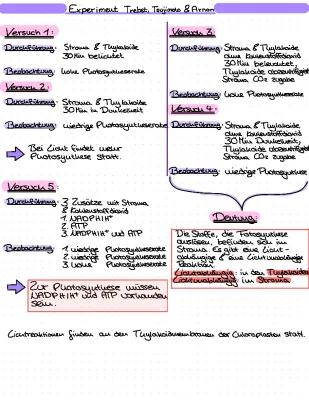 Experiment Trebst, Tsujimoto & Arnon
Versuch 1:
Durchführung: Stroma & Thylakoide
30 Min belichtet
Beobachtung: hohe Photosyntheserate
Versuch 2:
Durchführung: Stroma & Thylakoide
30 Min in Dunkelheit
Beobachtung: niedrige Photosyntheserate
Bei Licht findet mehr
Photosynthese statt.
Versuch 3:
Durchführung: Stroma & Thylakoide
ohne Kohlenstoffdioxid
30 Min beleuchtet,
Thylakoide abzentrifugiert
Stroma CO2 zugabe
Beobachtung: hohe Photosyntheserate
Versuch 4:
Durchführung: Stroma & Thylakoide
ohne Kohlenstoffdioxid
30 Min Dunkelheit,
Thylakoide abzentrifugiert
Stroma CO2 zugabe
Beobachtung: niedrige Photosynthese
Versuch 5:
Durchführung: 3 Zusätze mit Stroma
& Kohlenstoffdioxid
1. NADPH|H+
2. ATP
3. NADPH|H+ und ATP
Beobachtung: 1. niedrige Photosyntheserate
2. niedrige Photosyntheserate
3. hohe Photosyntheserate
Zur Photosynthese müssen
NADPH|H+ und ATP vorhanden
sein.
Deutung:
Die Stoffe, die Fotosynthese
auslösen, befinden sich im
Stroma. Es gibt eine Licht-
abhängige & eine Lichtunabhängige
Reaktion.
Lichtabhängig: in den Thylakoiden
Lichtunabhängig: im Stroma
Lichtreaktionen finden an den Thylakoidmembranen der Chloroplasten statt.